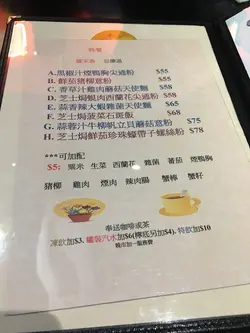 晚餐
A.黑椒汁煙鴨胸尖通粉 $55
B.鮮茄豬柳意粉 $55
C.香草汁雞肉蘑菇天使麵 $65
D.芝士焗蜆肉西蘭花尖通粉 $58
E.蒜香辣大蝦雜菌天使麵 $65
F.芝士焗菠菜石斑飯 $68
G.蒜蓉汁牛柳帆立貝蘑菇意粉 $75
H.芝士焗鮮茄珍珠蠔帶子螺絲粉 $78
***可加配
$5: 粟米 生菜 西蘭花 雜菌 蕃茄 煙鴨胸
豬柳 雞肉 煙肉 辣肉腸 蟹棒 蟹籽
奉送咖啡或茶
凍飲加$3, 罐裝汽水加$6(轉底另加$4), 特飲加$10